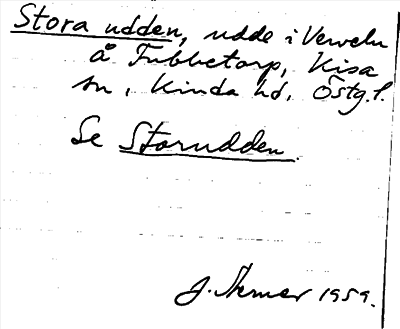 Stora udden, udde i Verveln
å Fubbetorp, Kisa
sn, Kinda hd, Östg. l.
Se Storudden.
J. 1959.